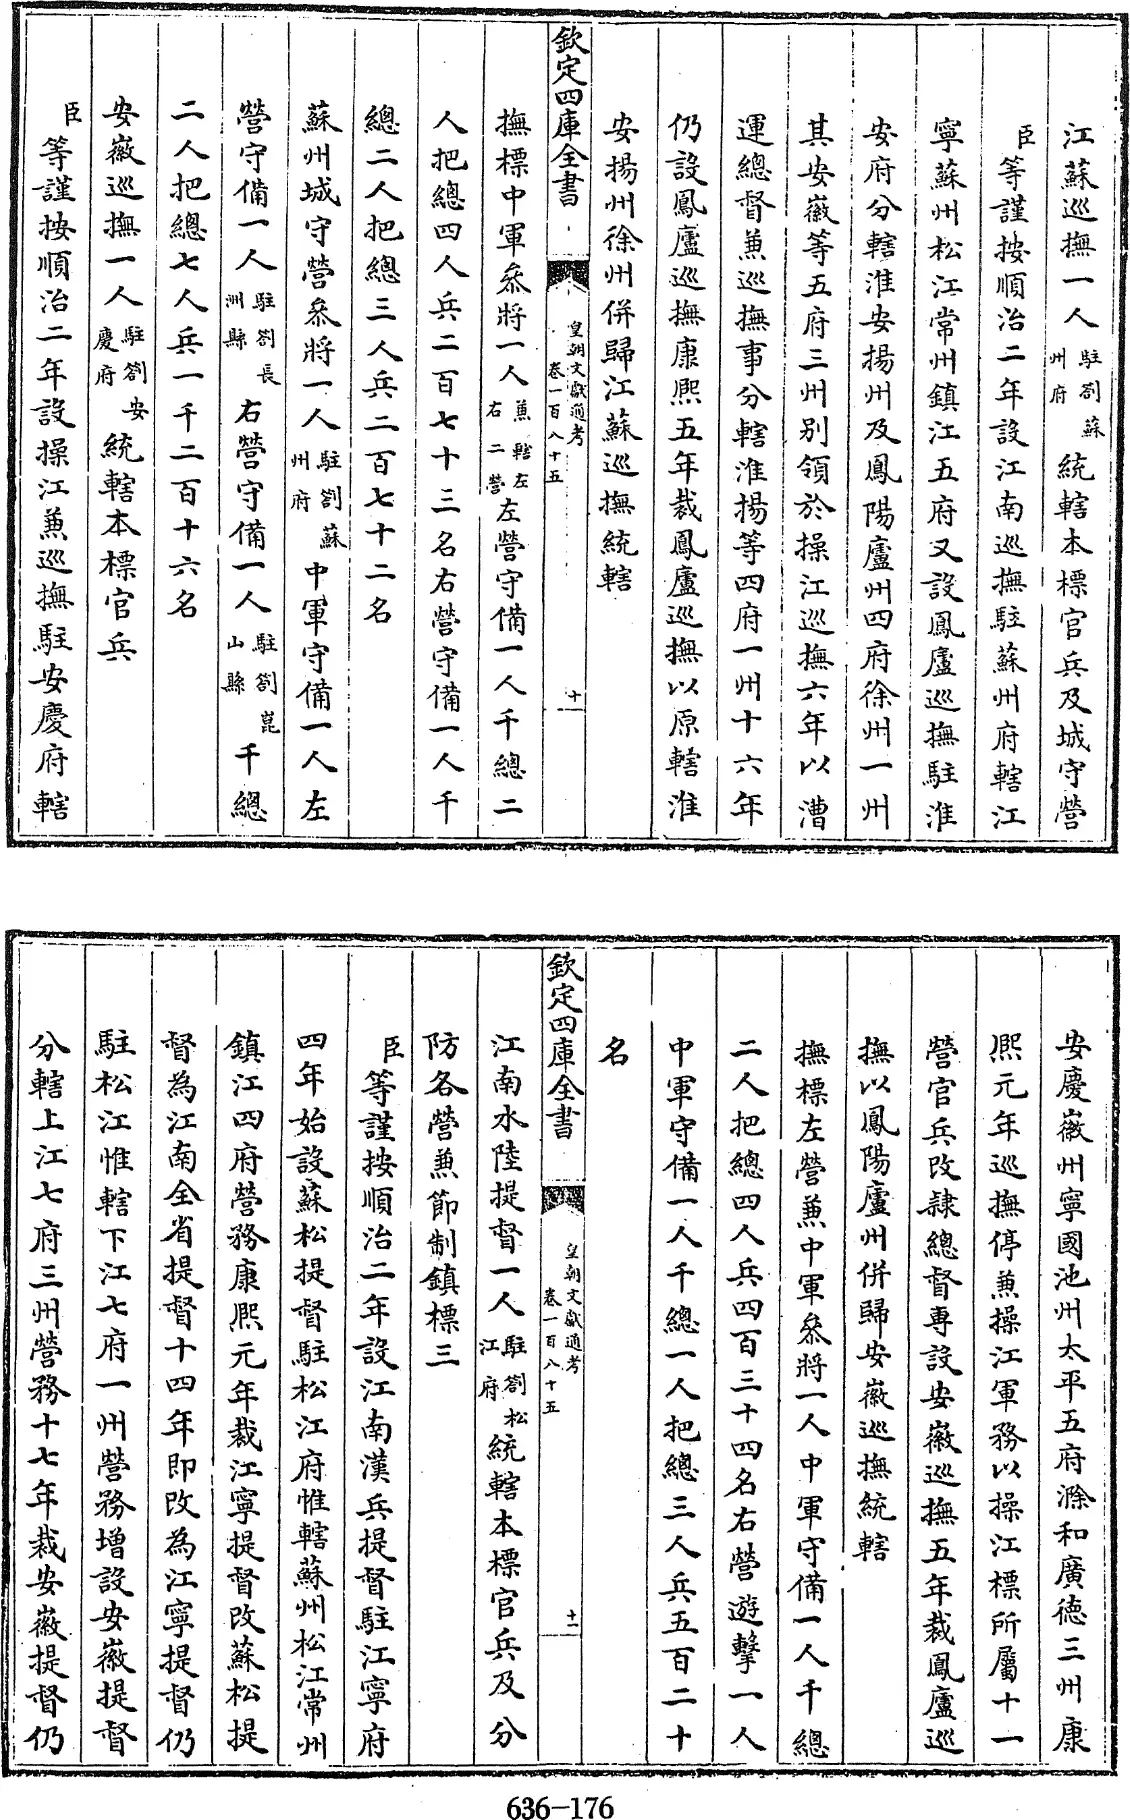 江蘇巡撫一人駐劄蘇州府統轄本標官兵及城守營
臣等謹按順治二年設江南巡撫駐蘇州府轄江
寧蘇州松江常州鎮江五府又設鳳廬巡撫駐淮
安府分轄淮安揚州及鳳陽廬州四府徐州一州
其安徽等五府三州別領於操江巡撫六年以漕
運總督兼巡撫事分轄淮揚等四府一州十六年
仍設鳳廬巡撫康熙五年裁鳳廬巡撫以原轄淮
安揚州徐州併歸江蘇巡撫統轄
欽定四庫全書
皇朝文獻通考
卷一百八十五
十
撫標中軍叅將一人兼轄左右二營左營守備一人千總二
人把總四人兵二百七十三名右營守備一人千
總二人把總三人兵二百七十二名
蘇州城守營叅將一人駐劄蘇州府中軍守備一人左
營守備一人駐劄長洲縣右營守備一人駐劄崑山縣千總
二人把總七人兵一千二百十六名
安徽巡撫一人駐劄安慶府統轄本標官兵
臣等謹按順治二年設操江兼巡撫駐安慶府轄
安慶徽州寧國池州太平五府滁和廣德三州康
熙元年巡撫停兼操江軍務以操江標所屬十一
營官兵改隷總督專設安徽巡撫五年裁鳳廬巡
撫以鳳陽廬州併歸安徽巡撫統轄
撫標左營兼中軍叅將一人中軍守備一人千總
二人把總四人兵四百三十四名右營遊擊一人
中軍守備一人千總一人把總三人兵五百二十
名
欽定四庫全書
皇朝文獻通考
卷一百八十五
十一
江南水陸提督一人駐劄松江府統轄本標官兵及分
防各營兼節制鎮標三
臣等謹按順治二年設江南漢兵提督駐江寧府
四年始設蘇松提督駐松江府惟轄蘇州松江常州
鎮江四府營務康熙元年裁江寧提督改蘇松提
督為江南全省提督十四年即改為江寧提督仍
駐松江惟轄下江七府一州營務增設安徽提督
分轄上江七府三州營務十七年裁安徽提督仍
636-176